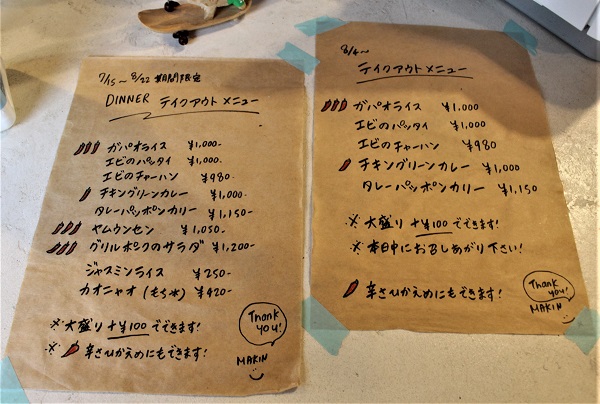 7/15〜8/22 期間限定
DINNER テイクアウトメニュー
ガパオライス ¥1,000-
エビのパッタイ ¥1,000-
エビのチャーハン ¥980-
チキングリーンカレー ¥1,000-
タレーパッポンカリー ¥1,150-
ヤムウンセン ¥1,050-
グリルポークのサラダ ¥1,200-
ジャスミンライス ¥250-
カオニャオ(もち米) ¥420-
※大盛り +¥100 でできます!
※ 辛さひかえめにもできます!
Thank you!
MAKIN
8/4〜
テイクアウトメニュー
ガパオライス ¥1,000
エビのパッタイ ¥1,000
エビのチャーハン ¥980
チキングリーンカレー ¥1,000
タレーパッポンカリー ¥1,150
※大盛り +¥100 でできます!
※本日中にお召しあがり下さい!
辛さひかえめにもできます!
Thank you!
MAKIN